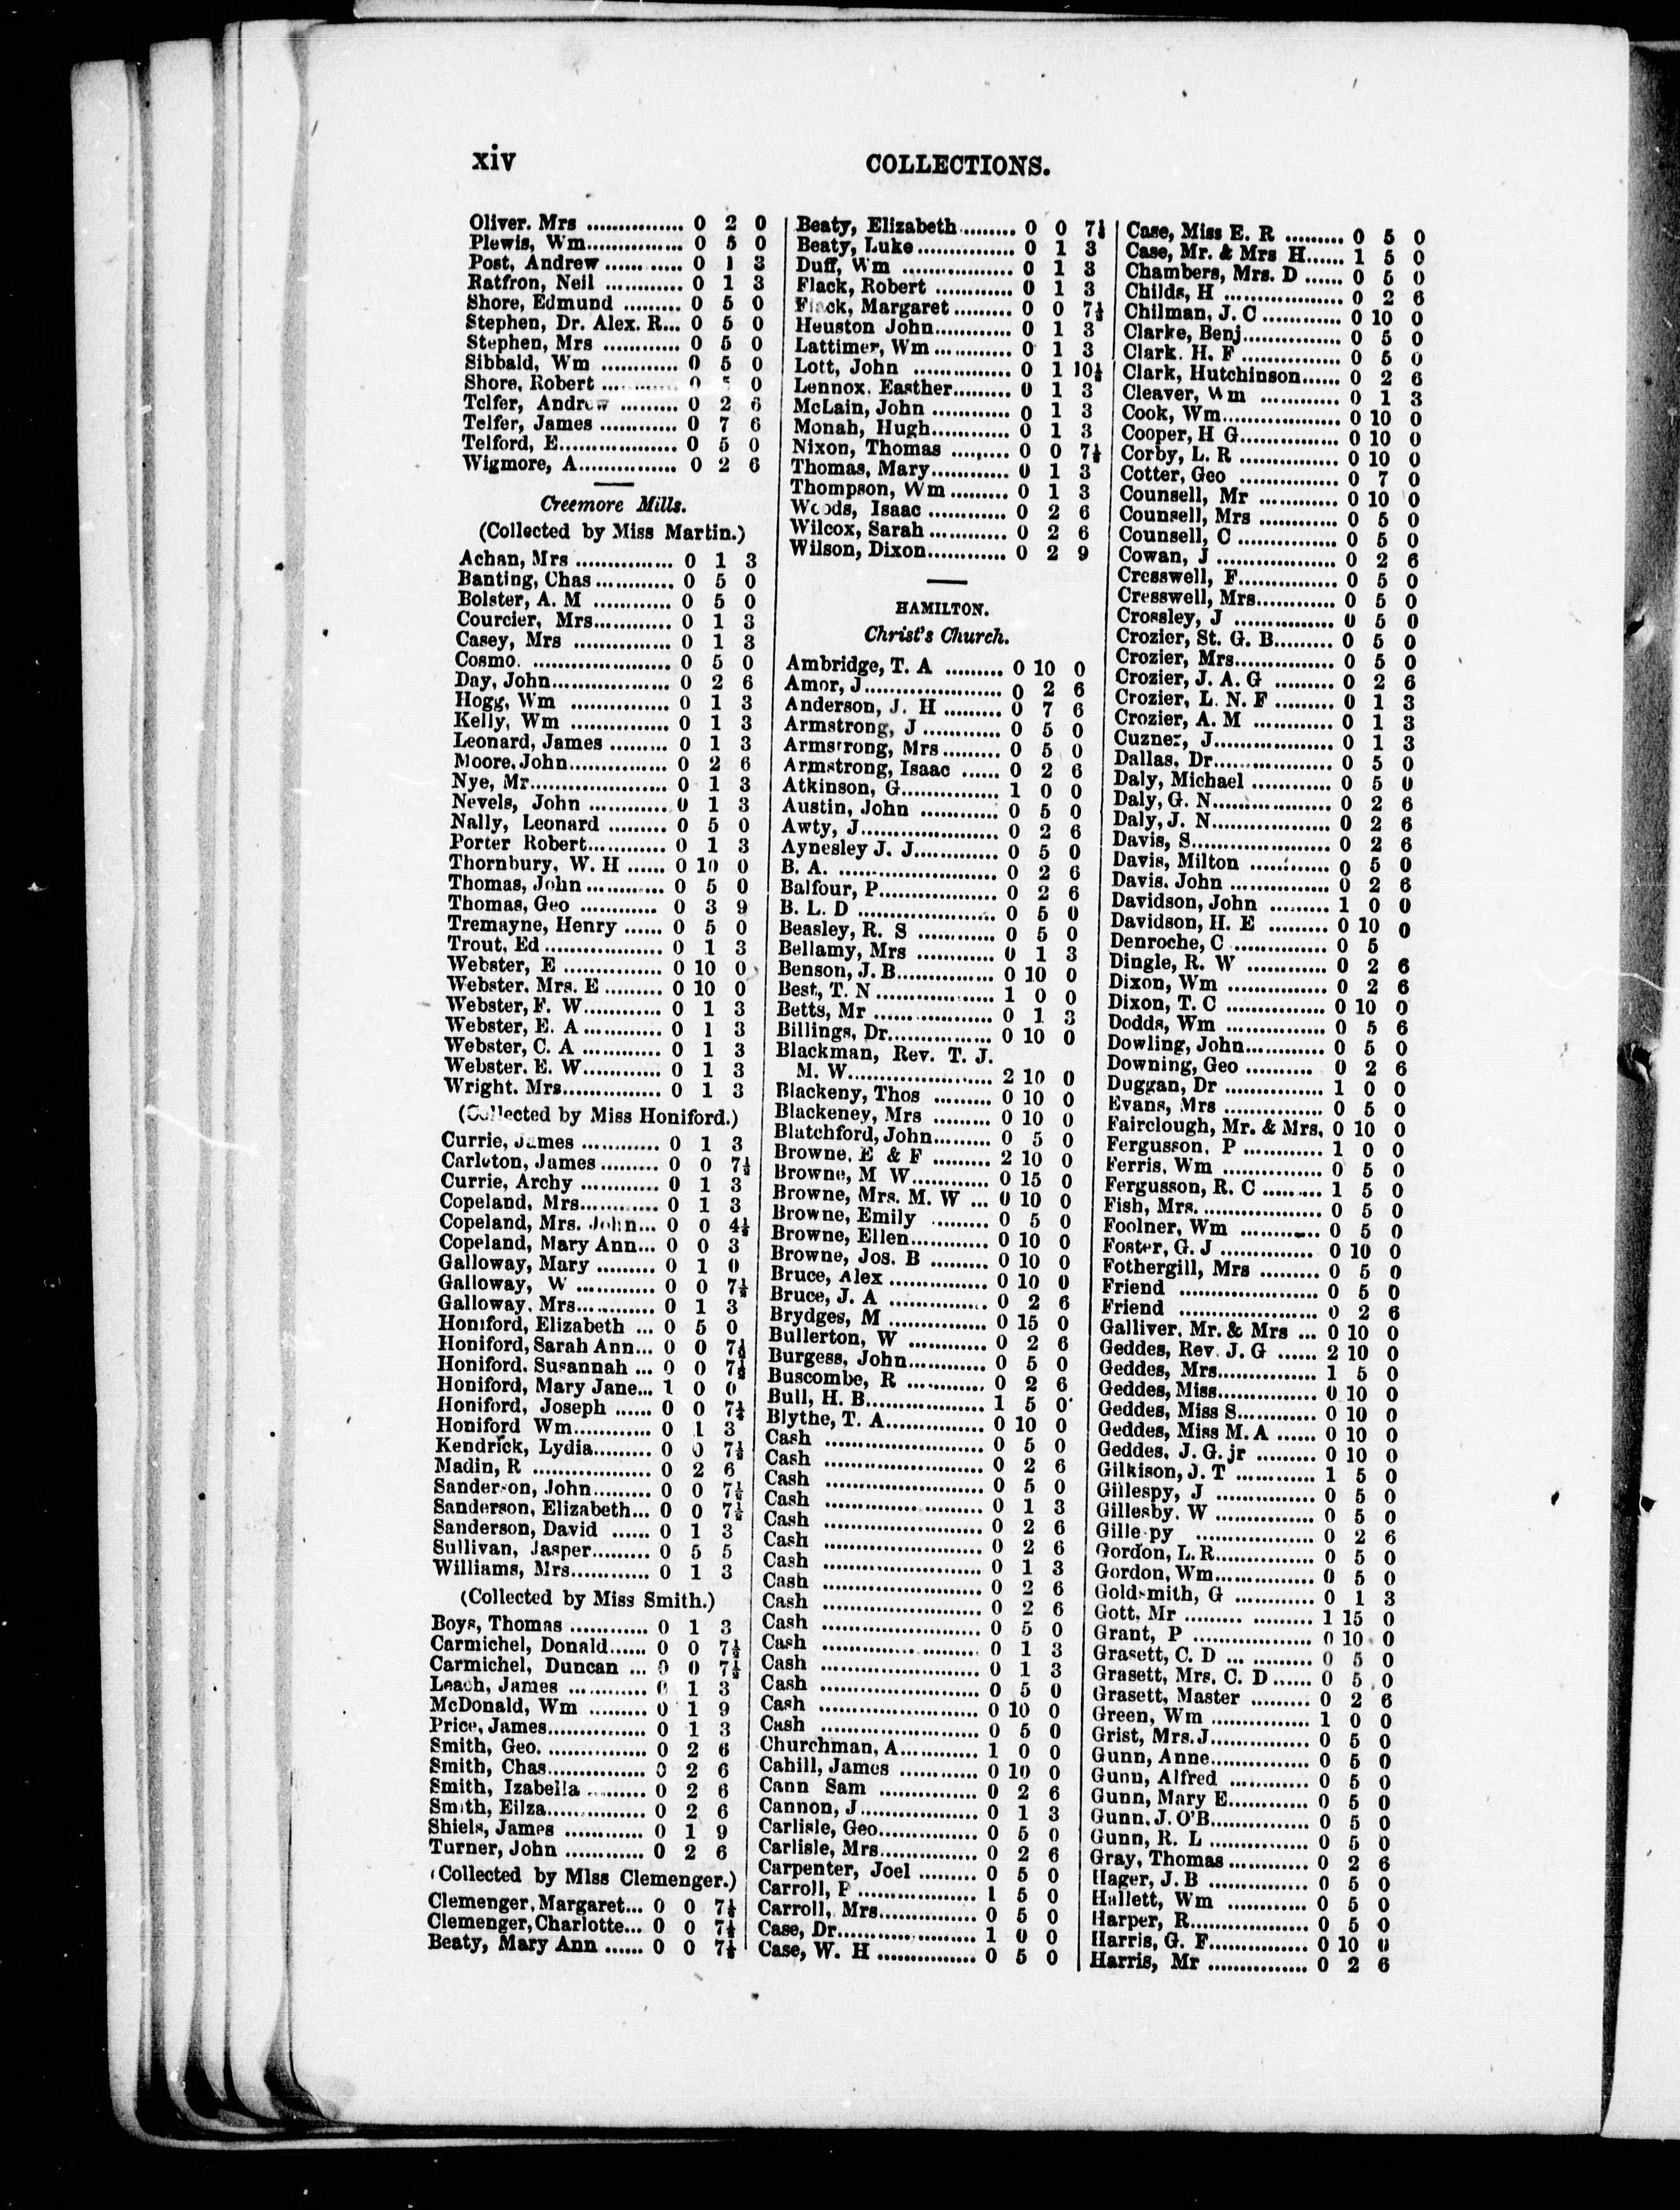 xiv
COLLECTIONS.
Oliver. Mrs ............... 0 2 0
Plewis, Wm............... 0 5 0
Post, Andrew ............ 0 1 3
Ratfron, Neil ............ 0 1 3
Shore, Edmund ......... 0 5 0
Stephen, Dr. Alex. R... 0 5 0
Stephen, Mrs ............ 0 5 0
Sibbald, Wm ............ 0 5 0
Shore, Robert ............ 0 5 0
Telfer, Andrew ......... 0 2 6
Telfer, James ............ 0 7 6
Telford, E.................. 0 5 0
Wigmore, A............... 0 2 6
Creemore Mills.
(Collected by Miss Martin.)
Achan, Mrs ............... 0 1 3
Banting, Chas............ 0 5 0
Bolster, A. M ............ 0 5 0
Courcier, Mrs............ 0 1 3
Casey, Mrs ............... 0 1 3
Cosmo. ..................... 0 5 0
Day, John.................. 0 2 6
Hogg, Wm ............... 0 1 3
Kelly, Wm ............... 0 1 3
Leonard, James ......... 0 1 3
Moore, John............... 0 2 6
Nye, Mr..................... 0 1 3
Nevels, John ............ 0 1 3
Nally, Leonard ......... 0 5 0
Porter Robert............ 0 1 3
Thornbury, W. H ...... 0 10 0
Thomas, John ............ 0 5 0
Thomas, Geo ............ 0 3 9
Tremayne, Henry ...... 0 5 0
Trout, Ed .................. 0 1 3
Webster, E ............... 0 10 0
Webster. Mrs. E ......... 0 10 0
Webster, F. W............ 0 1 3
Webster, E. A ............ 0 1 3
Webster, C. A ............ 0 1 3
Webster. E. W............ 0 1 3
Wright. Mrs............... 0 1 3
(Collected by Miss Honiford.)
Currie, James ............ 0 1 3
Carleton, James......... 0 0 7½
Currie, Archy ............ 0 1 3
Copeland, Mrs............ 0 1 3
Copeland, Mrs. John... 0 0 4½
Copeland, Mary Ann... 0 0 3
Galloway, Mary ......... 0 1 0
Galloway, W ............ 0 0 7½
Galloway, Mrs............ 0 1 3
Honiford, Elizabeth ... 0 5 0
Honiford, Sarah Ann... 0 0 7½
Honiford. Susannah ... 0 0 7½
Honiford, Mary Jane... 1 0 0
Honiford, Joseph ...... 0 0 7½
Honiford Wm............ 0 1 3
Kendrick, Lydia......... 0 0 7½
Madin, R .................. 0 2 6
Sanderson, John......... 0 0 7½
Sanderson, Elizabeth... 0 0 7½
Sanderson, David ...... 0 1 3
Sullivan, Jasper......... 0 5 5
Williams, Mrs............ 0 1 3
(Collected by Miss Smith.)
Boys, Thomas ............ 0 1 3
Carmichel, Donald...... 0 0 7½
Carmichel, Duncan ... 0 0 7½
Leach, James ............ 0 1 3
McDonald, Wm ......... 0 1 9
Price, James............... 0 1 3
Smith, Geo. ............... 0 2 6
Smith, Chas............... 0 2 6
Smith, Izabella ......... 0 2 6
Smith, Eilza............... 0 2 6
Shiels, James ............ 0 1 9
Turner, John ............ 0 2 6
(Collected by Miss Clemenger.)
Clemenger, Margaret... 0 0 7½
Clemenger, Charlotte... 0 0 7½
Beaty, Mary Ann ...... 0 0 7½
Beaty, Elizabeth......... 0 0 7½
Beaty, Luke............... 0 1 3
Duff, Wm .................. 0 1 3
Flack, Robert ............ 0 1 3
Flack, Margaret ......... 0 0 7½
Heuston John............ 0 1 3
Lattimer, Wm ............ 0 1 3
Lott, John ............... 0 1 10½
Lennox, Easther......... 0 1 3
McLain, John ............ 0 1 3
Monah, Hugh............ 0 1 3
Nixon, Thomas ......... 0 0 7½
Thomas, Mary............ 0 1 3
Thompson, Wm ......... 0 1 3
Woods, Isaac ............ 0 2 6
Wilcox, Sarah ............ 0 2 6
Wilson, Dixon............ 0 2 9
HAMILTON.
Christ's Church.
Ambridge, T. A ......... 0 10 0
Amor, J..................... 0 2 6
Anderson, J. H ......... 0 7 6
Armstrong, J ............ 0 5 0
Armstrong, Mrs ......... 0 5 0
Armstrong, Isaac ...... 0 2 6
Atkinson, G............... 1 0 0
Austin, John ............ 0 5 0
Awty, J..................... 0 2 6
Aynesley J. J............. 0 5 0
B. A. ........................ 0 2 6
Balfour, P.................. 0 2 6
B. L. D ..................... 0 5 0
Beasley, R. S ............ 0 5 0
Bellamy, Mrs ............ 0 1 3
Benson, J. B............... 0 10 0
Best, T. N .................. 1 0 0
Betts, Mr .................. 0 1 3
Billings, Dr............... 0 10 0
Blackman, Rev. T. J.
M. W..................... 2 10 0
Blackeny, Thos ......... 0 10 0
Blackeney, Mrs ......... 0 10 0
Blatchford, John......... 0 5 0
Browne. E & F ......... 2 10 0
Browne, M W............ 0 15 0
Browne, Mrs. M. W ... 0 10 0
Browne, Emily ......... 0 5 0
Browne, Ellen............ 0 10 0
Browne, Jos. B ......... 0 10 0
Bruce, Alex ............... 0 10 0
Bruce, J. A ............... 0 2 6
Brydges, M ............... 0 15 0
Bullerton, W ............ 0 2 6
Burgess, John............ 0 5 0
Buscombe, R ............ 0 2 6
Bull, H. B.................. 1 5 0
Blythe, T. A............... 0 10 0
Cash ........................ 0 5 0
Cash ........................ 0 2 6
Cash ........................ 0 5 0
Cash ........................ 0 1 3
Cash ........................ 0 2 6
Cash ........................ 0 2 6
Cash ........................ 0 1 3
Cash ........................ 0 2 6
Cash ........................ 0 2 6
Cash ........................ 0 5 0
Cash ........................ 0 1 3
Cash ........................ 0 1 3
Cash ........................ 0 5 0
Cash ........................ 0 10 0
Cash ........................ 0 5 0
Churchman, A............ 1 0 0
Cahill, James ............ 0 10 0
Cann Sam ............... 0 2 6
Cannon, J.................. 0 1 3
Carlisle, Geo............... 0 5 0
Carlisle, Mrs............... 0 2 6
Carpenter, Joel ......... 0 5 0
Carroll, P .................. 1 5 0
Carroll, Mrs............... 0 5 0
Case, Dr..................... 1 0 0
Case, W. H ............... 0 5 0
Case, Miss E. R ......... 0 5 0
Case, Mr. & Mrs H...... 1 5 0
Chambers, Mrs. D ...... 0 5 0
Childs, H .................. 0 2 6
Chilman, J. C ............ 0 10 0
Clarke, Benj............... 0 5 0
Clark. H. F ............... 0 5 0
Clark, Hutchinson...... 0 2 6
Cleaver, Wm ............ 0 1 3
Cook, Wm.................. 0 10 0
Cooper, H G............... 0 10 0
Corby, L. R ............... 0 10 0
Cotter, Geo ............... 0 7 0
Counsell, Mr ............ 0 10 0
Counsell, Mrs ............ 0 5 0
Counsell, C ............... 0 5 0
Cowan, J .................. 0 2 6
Cresswell, F............... 0 5 0
Cresswell, Mrs............ 0 5 0
Crossley, J ............... 0 5 0
Crozier, St. G. B......... 0 5 0
Crozier, Mrs............... 0 5 0
Crozier, J. A. G ......... 0 2 6
Crozier, L. N. F ......... 0 1 3
Crozier, A. M ............ 0 1 3
Cuzner, J.................. 0 1 3
Dallas, Dr.................. 0 5 0
Daly, Michael ............ 0 5 0
Daly, G. N.................. 0 2 6
Daly, J. N.................. 0 2 6
Davis, S..................... 0 2 6
Davis, Milton ............ 0 5 0
Davis. John ............... 0 2 6
Davidson, John ......... 1 0 0
Davidson, H. E ......... 0 10 0
Denroche, C ............... 0 5
Dingle, R. W ............ 0 2 6
Dixon, Wm ............... 0 2 6
Dixon, T. C ............... 0 10 0
Dodds, Wm ............... 0 5 6
Dowling, John............ 0 5 0
Downing, Geo .......... 0 2 6
Duggan, Dr ............... 1 0 0
Evans, Mrs ............... 0 5 0
Fairclough, Mr. & Mrs. 0 10 0
Fergusson. P ............ 1 0 0
Ferris, Wm ............... 0 5 0
Fergusson, R. C ......... 1 5 0
Fish, Mrs.................. 0 5 0
Foolner, Wm ............ 0 5 0
Foster, G. J .............. 0 10 0
Fothergill, Mrs ......... 0 5 0
Friend ..................... 0 5 0
Friend ..................... 0 2 6
Galliver. Mr. & Mrs ... 0 10 0
Geddes, Rev. J. G ...... 2 10 0
Geddes, Mrs............... 1 5 0
Geddes, Miss............... 0 10 0
Geddes, Miss S............ 0 10 0
Geddes, Miss M. A ...... 0 10 0
Geddes, J. G. jr ......... 0 10 0
Gilkison, J. T ............ 1 5 0
Gillespy, J ............... 0 5 0
Gillesby. W ............... 0 5 0
Gille py .................. 0 2 6
Gordon, L. R............... 0 5 0
Gordon, Wm............... 0 5 0
Goldsmith, G ............ 0 1 3
Gott. Mr ......... ......... 1 15 0
Grant, P .................. 0 10 0
Grasett, C. D ............ 0 5 0
Grasett, Mrs. C. D ...... 0 5 0
Grasett, Master ......... 0 2 6
Green, Wm ............... 1 0 0
Grist, Mrs. J............... 0 5 0
Gunn, Anne............... 0 5 0
Gunn, Alfred ............ 0 5 0
Gunn, Mary E............ 0 5 0
Gunn. J. O'B............... 0 5 0
Gunn, R. L ............... 0 5 0
Gray, Thomas............ 0 2 6
Hager, J. B ............... 0 5 0
Hallett, Wm ............ 0 5 0
Harper, R.................. 0 5 0
Harris, G. F............... 0 10 0
Harris, Mr ............... 0 2 6